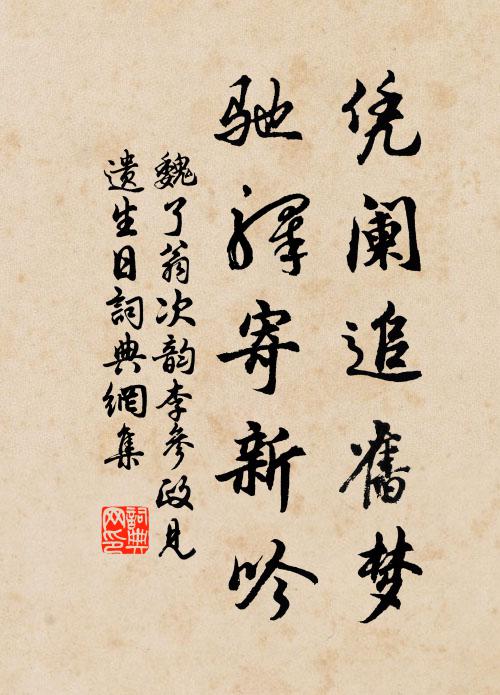 凭阑追舊梦
驰驛寄新吟
魏了翁次韵李參政见
遗生日詞典網集
詞典网印